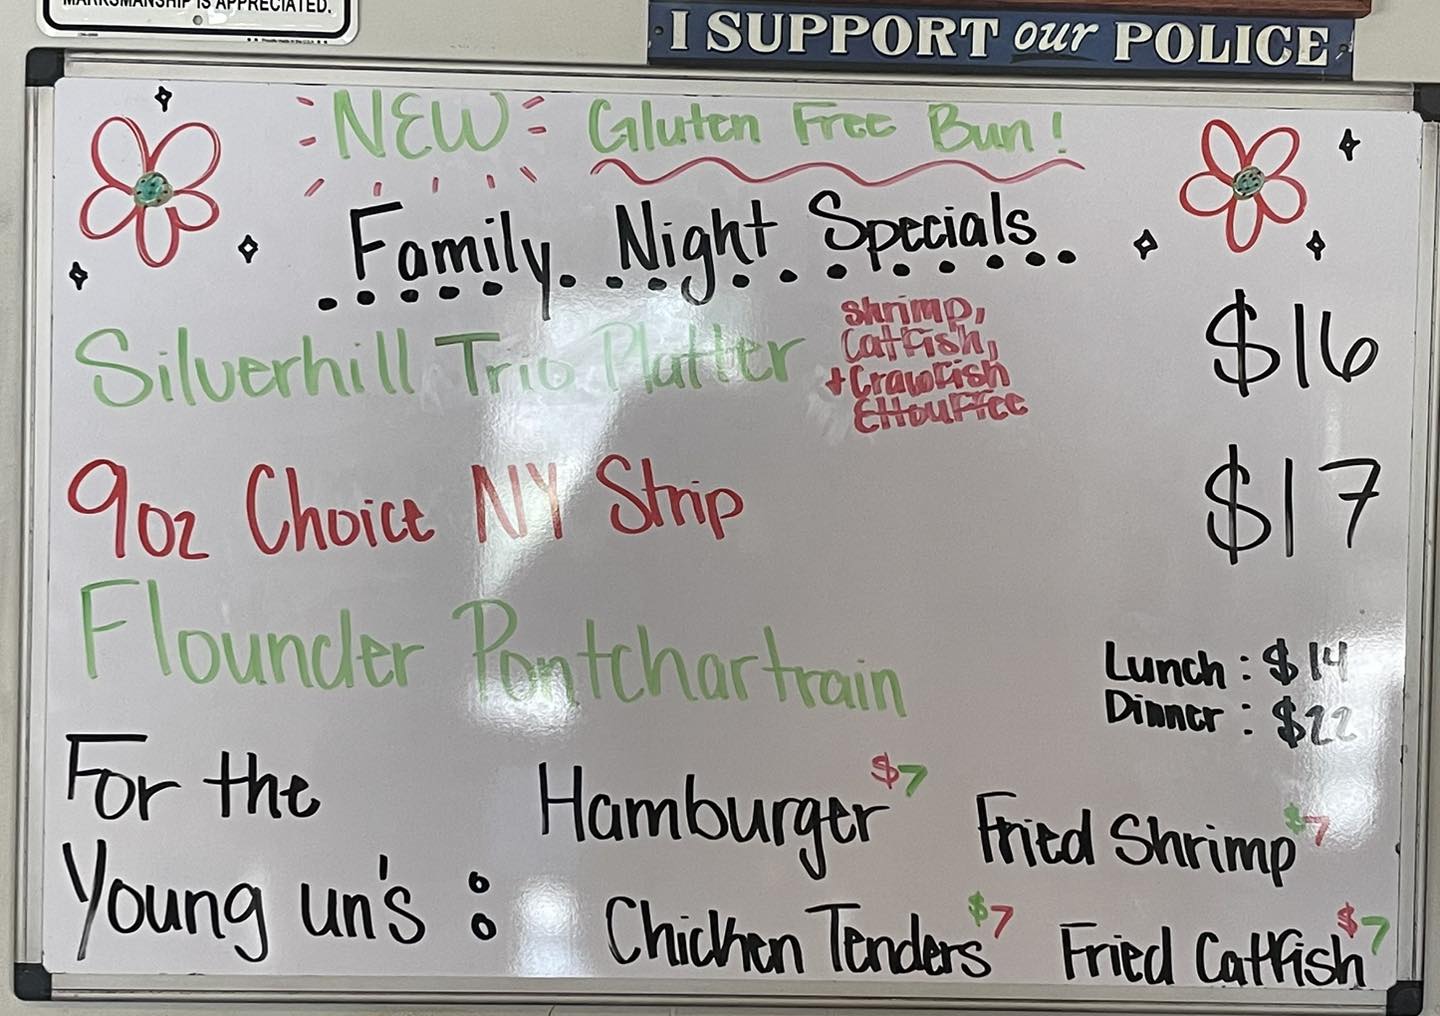 MARKSMANSHIP IS APPRECIATED.
I SUPPORT our POLICE
NEW Gluten Free Bun!
Family Night Specials
Silverhill Trio Platter shrimp, $16
Catfish,
+Crawfish
Ettouffee
9oz Choice NY Strip $17
Flounder Pontchartrain Lunch: $14
Dinner: $22
For the Hamburger $7 Fried Shrimp $7
Young un's: Chicken Tenders $7 Fried Catfish $7